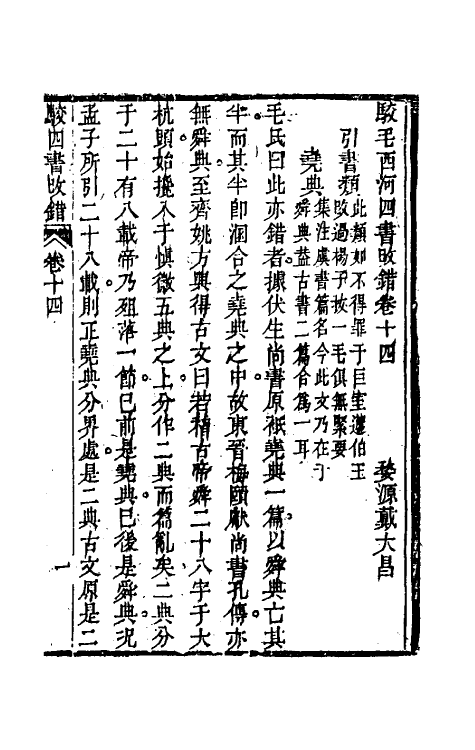 駮毛西河四書改錯卷十四
婺源戴大昌
引書類此類如不得罪于巨室蘧伯玉
改過楊子拔一毛俱無緊要
堯典集注虞書篇名今此文乃在于
舜典葢古書二篇合爲一耳
毛氏曰此亦錯者據伏生尚書原祇堯典一篇以舜典亡其
半而其半卽溷合之堯典之中故東晉梅頤獻尚書孔傳亦
無舜典至齊姚方興得古文曰若稽古帝舜二十八字于大
杭頭始攙入于愼微五典之上分作二典而篇亂矣二典分
于二十有八載帝乃殂落一節已前是堯典已後是舜典况
孟子所引二十八載則正堯典分界處是二典古文原是二
駮四書改錯
卷十四
一